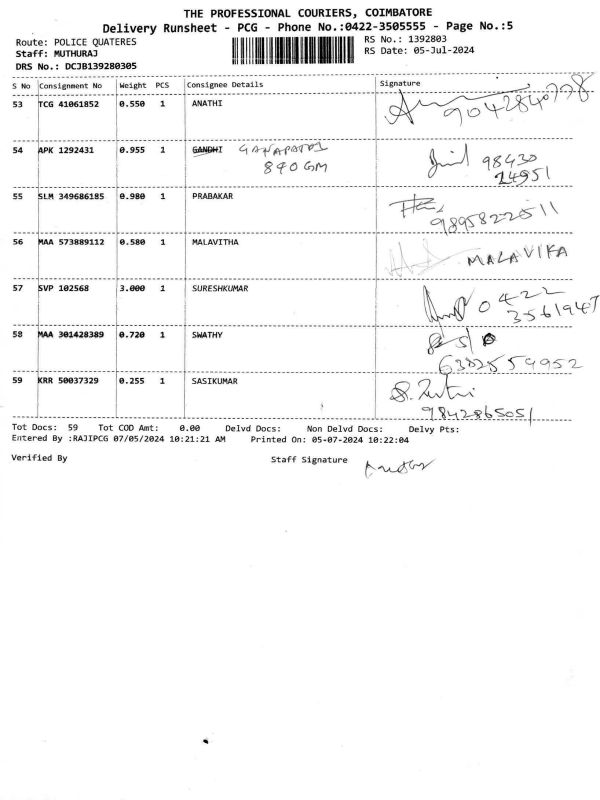 THE PROFESSIONAL COURIERS, COIMBATORE
Delivery Runsheet - PCG - Phone No.:0422-3505555 - Page No.:5
Route: POLICE QUATERES RS No.: 1392803
Staff: MUTHURAJ RS Date: 05-Jul-2024
DRS No.: DCJB139280305
S No Consignment No Weight PCS Consignee Details Signature
53 TCG 41061852 0.550 1 ANATHI
9042840778
54 APK 1292431 0.955 1 GANDHI GANAPATHI
840GM
98430
24951
55 SLM 349686185 0.980 1 PRABAKAR
9895822511
56 MAA 573889112 0.580 1 MALAVITHA
MALAVIKA
57 SVP 102568 3.000 1 SURESHKUMAR
0422
3561947
58 MAA 301428389 0.720 1 SWATHY
6382559952
59 KRR 50037329 0.255 1 SASIKUMAR
9842865051
Tot Docs: 59 Tot COD Amt: 0.00 Delvd Docs: Non Delvd Docs: Delvy Pts:
Entered By :RAJIPCG 07/05/2024 10:21:21 AM Printed On: 05-07-2024 10:22:04
Verified By Staff Signature